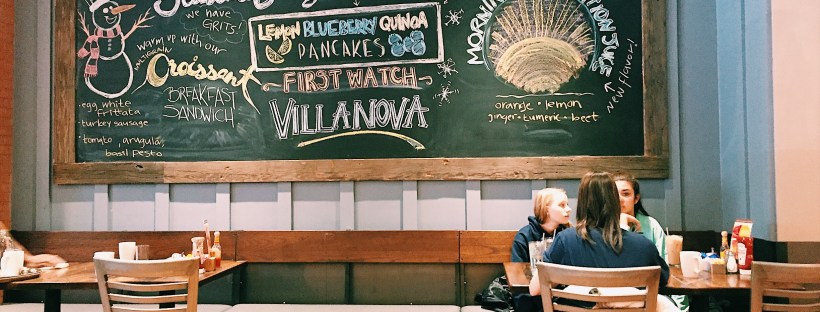 we have
GRITS!
warm up with our
MULTIGRAIN
Croissant
BREAKFAST
SANDWICH
• egg white
frittata
• turkey sausage
• tomato, arugula,
basil pesto
LEMON BLUEBERRY QUINOA
PANCAKES
FIRST WATCH
VILLANOVA
MORNING
JUICE
orange • lemon
ginger • tumeric • beet
new flavor!